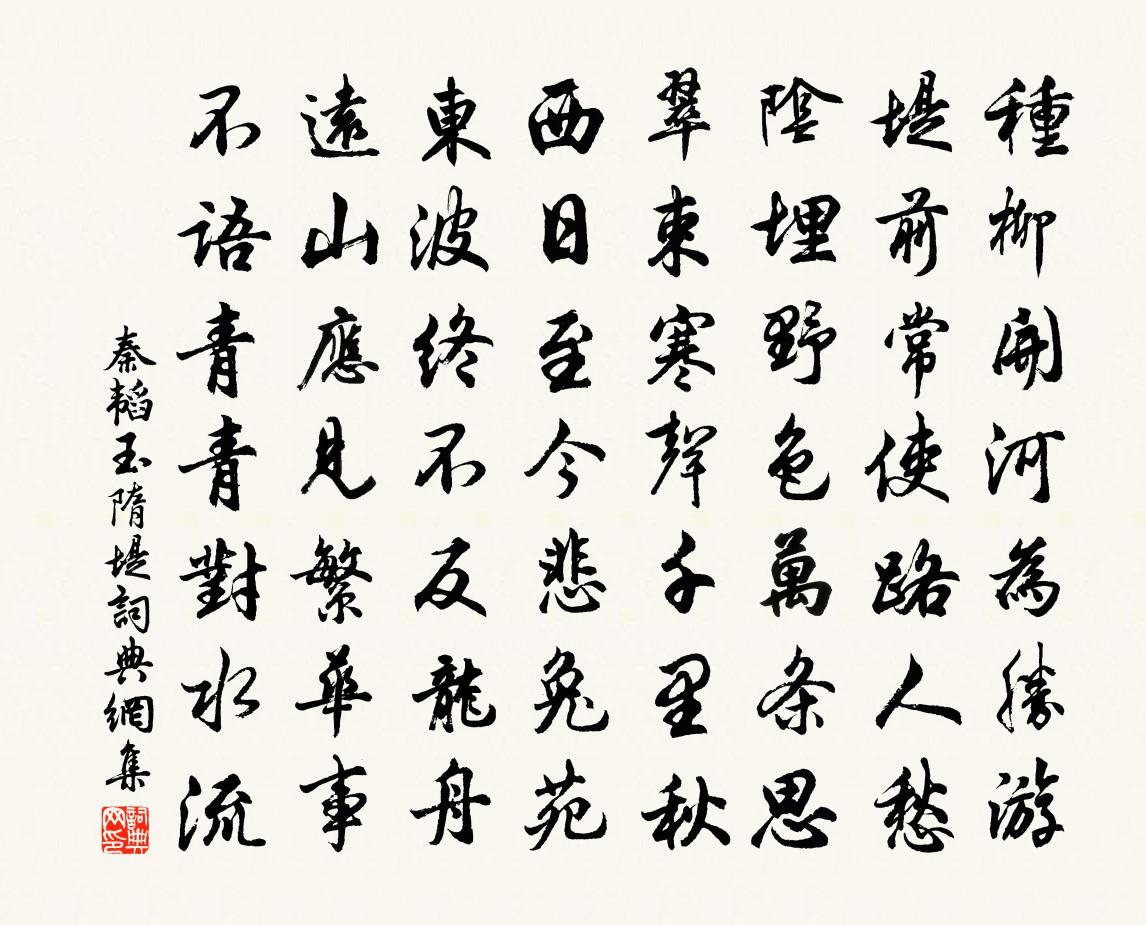 種柳開河為勝游
堤前常使路人愁
陰埋野色萬条思
翠束寒聲千里秋
西日至今悲兔苑
東波終不反龍舟
遠山應見繁華事
不語青青對水流
秦韜玉隋堤詞典網集
詞典网印